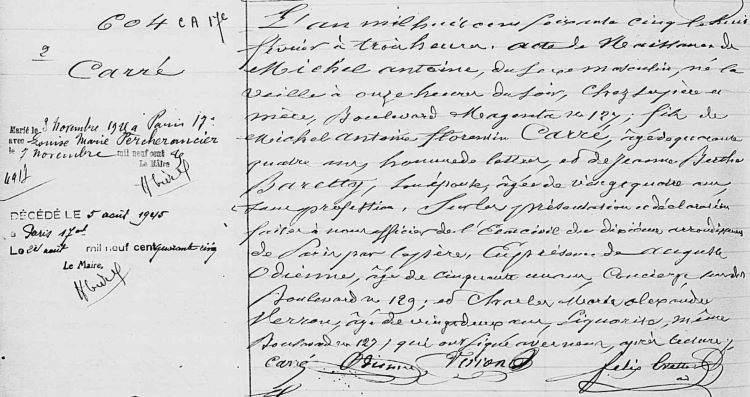 604 CA 17e
2
Carré
Marié le 3 Novembre à Paris 17e
avec Louise Marie Percherancier
le 7 Novembre mil neuf cent
Le Maire
DÉCÉDÉ LE 5 août 1945
à Paris
Le août mil neuf cent quarante cinq
Le Maire,
L'an mil huit cent soixante cinq le huit
février à trois heures. acte de Naissance de
Michel Antoine, du sexe masculin, né la
veille à onze heures du soir, chez ses père et
mère, Boulevard Magenta no 127; fils de
Michel Antoine Florentin Carré, âgé de quarante
quatre ans, homme de lettres, et de Jeanne Berthe
Baretti, son épouse, âgée de vingt quatre ans
sans profession. Sur la présentation et déclaration
faites à nous officier de l'Etat civil du dixième arrondissement
de Paris par le père, En présence de Auguste
Odienne, âgé de cinquante un ans, Concierge susdit
Boulevard no 129; et Charles Marie Alexandre
âgé de vingt deux ans, Liquoriste, même
Boulevard no 127; qui ont signé avec nous, après lecture;
Carré Odienne